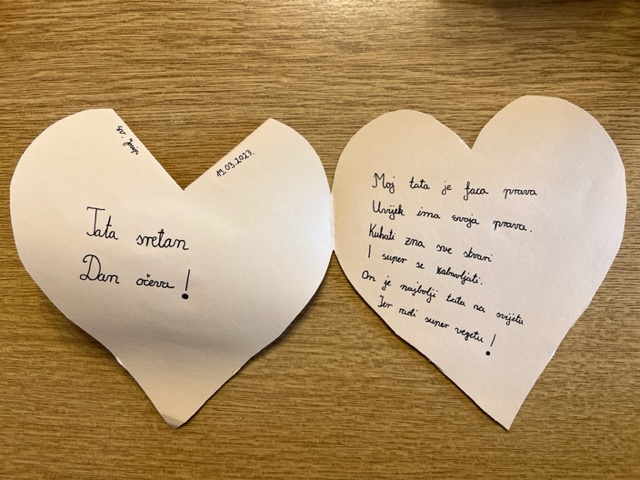 19.03.2023.
Tata sretan
Dan očeva!
Moj tata je faca prava
Uvijek ima svoja prava.
Kuhati zna sve stvari
I super se zabavljati.
On je najbolji tata na svijetu
Jer radi super vegetu!